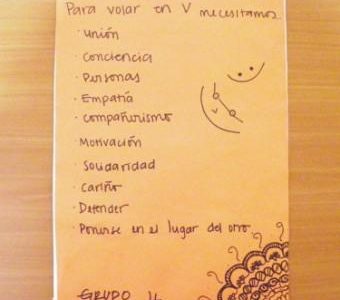 Para volar en V necesitamos
· Unión
· Conciencia
· Personas
· Empatía
· Compañerismo
· Motivación
· Solidaridad
· Cariño
· Defender
· Ponerse en el lugar del otro
GRUPO